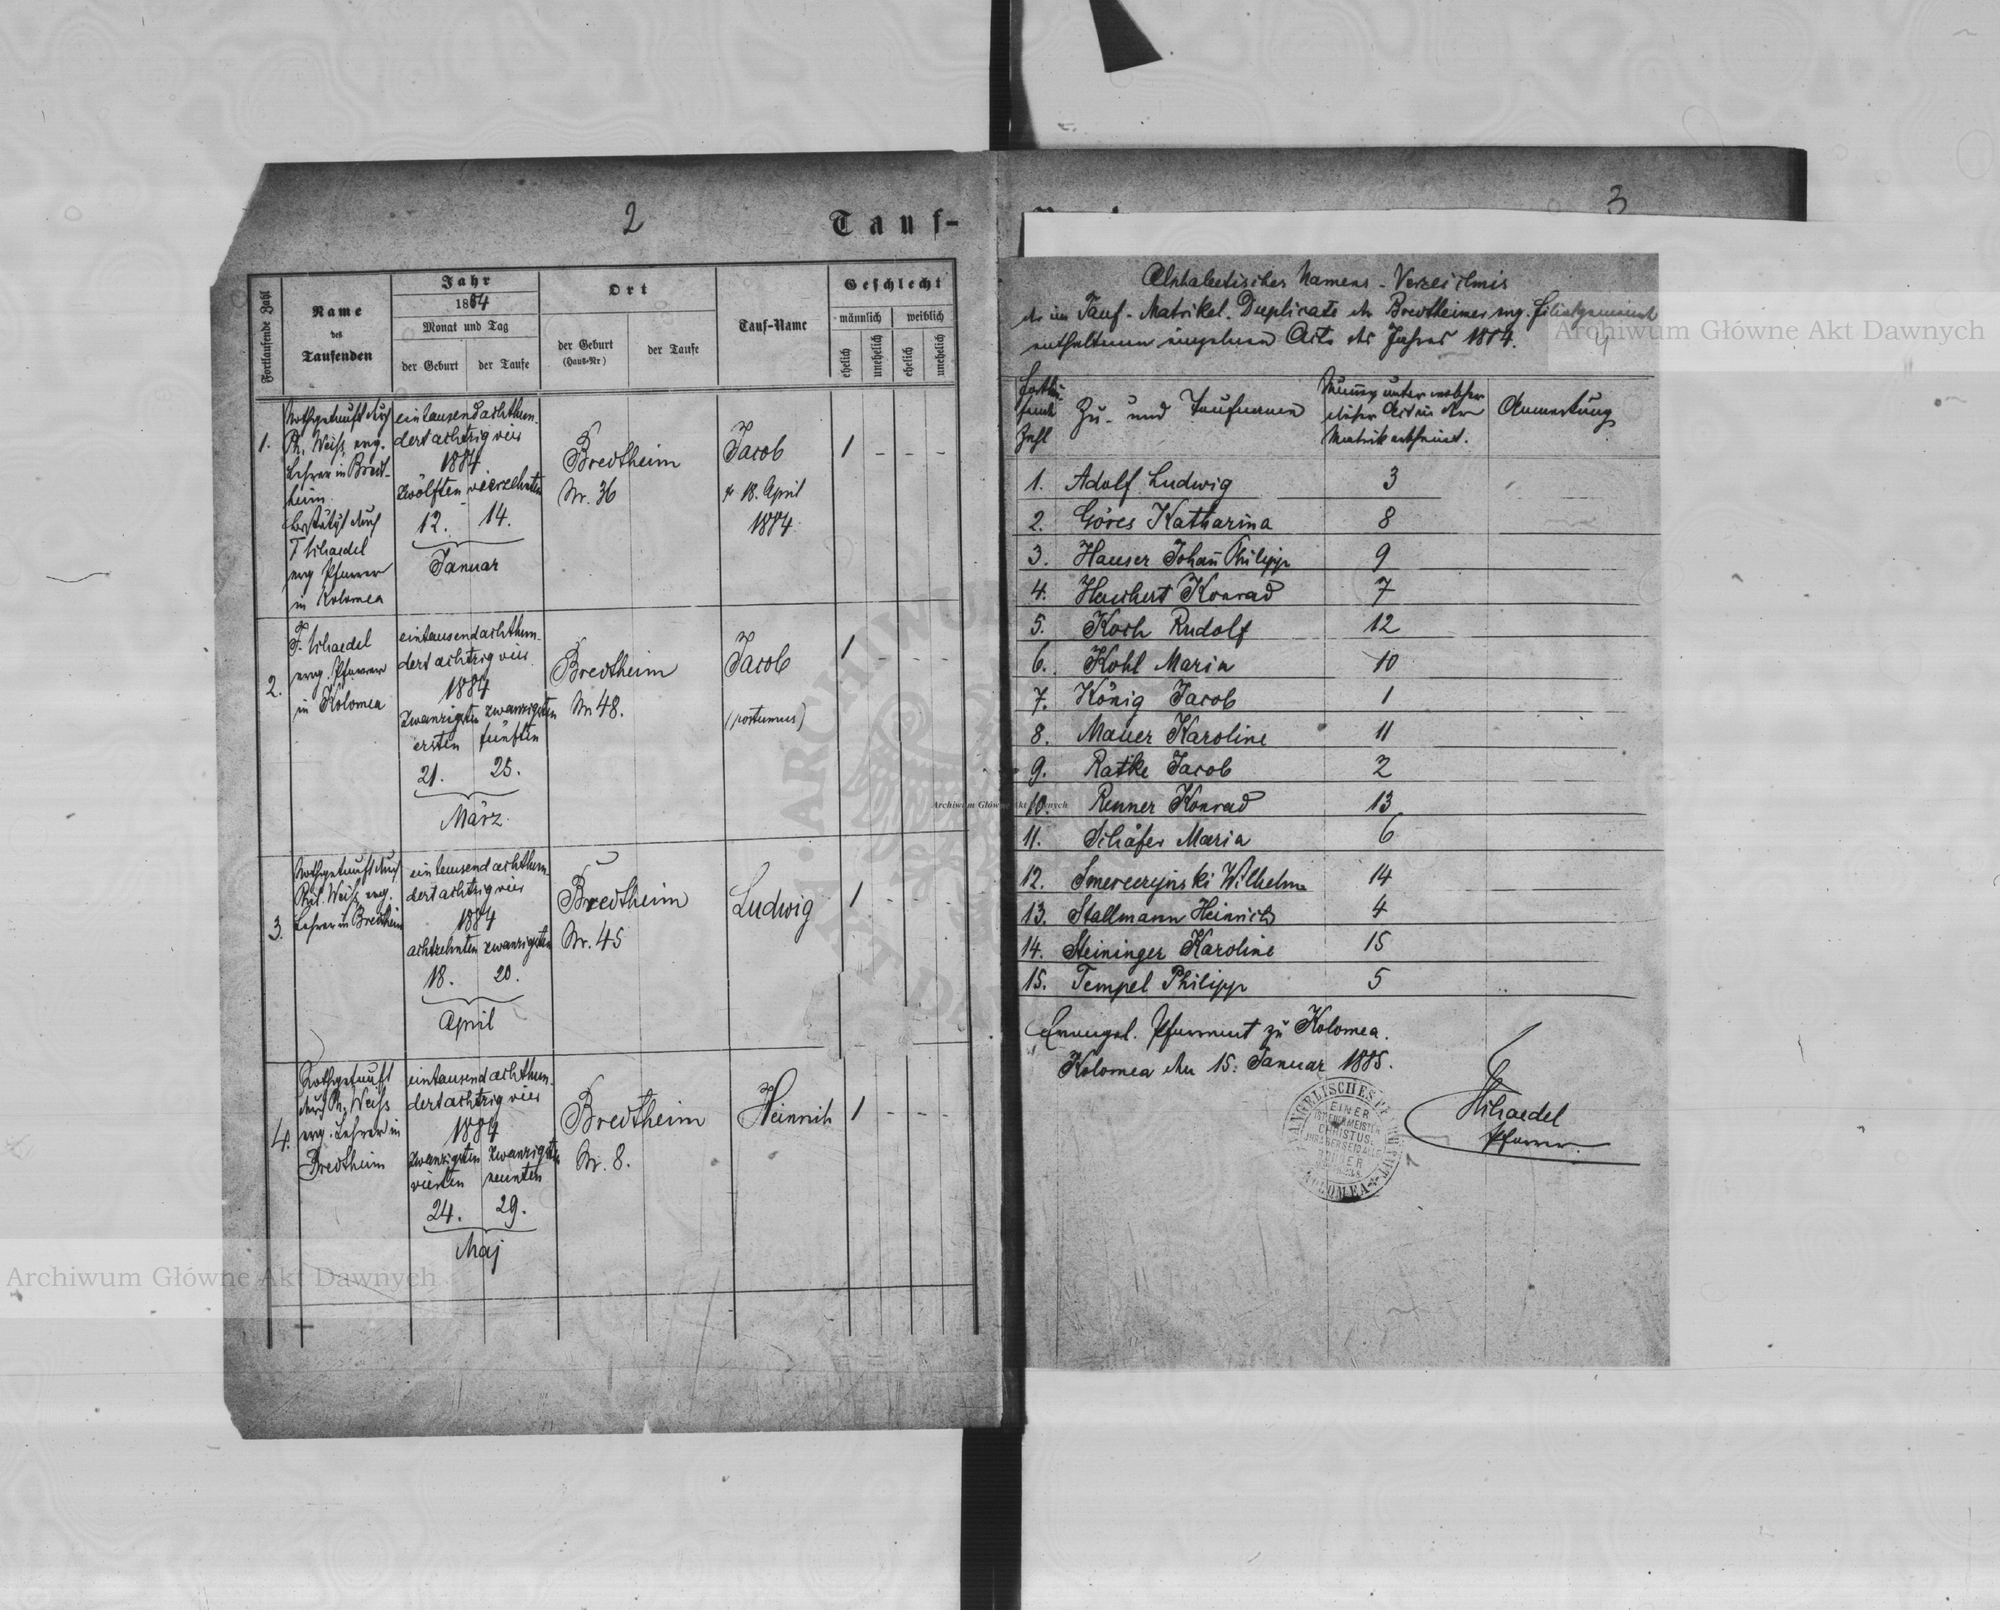 2
Tauf-
Fortlaufende Zahl
Name
des
Taufenden
Jahr
1884
Monat und Tag
der Geburt
der Taufe
Ort
der Geburt
(Haus-Nr)
der Taufe
Tauf-Name
Geschlecht
männlich
weiblich
ehelich
unehelich
ehelich
unehelich
1.
Nothgetauft durch
Ph. Weiß, evg.
Lehrer in Bredt-
heim.
bestätigt durch
F. Schaedel
evg Pfarrer
in Kolomea
eintausendachthun-
dertachtzig vier
1884
zwölften vierzehnten
12. 14.
Januar
Bredtheim
Nr. 36
Jacob
† 18. April
1884.
1 - - -
2.
F. Schaedel
evg. Pfarrer
in Kolomea
eintausendachthun-
dertachtzig vier
1884
zwanzigsten zwanzigsten
ersten fünften
21. 25.
März.
Bredtheim
Nr 48.
Jacob
(postumus)
1 - - -
3.
Nothgetauft durch
Phil. Weiß, evg.
Lehrer in Bredtheim
eintausendachthun-
dertachtzig vier
1884
achtzehnten zwanzigsten
18. 20.
April
Bredtheim
Nr. 45
Ludwig
1 - - -
4.
Nothgetauft
durch Ph. Weiß
evg. Lehrer in
Bredtheim
eintausendachthun-
dertachtzig vier
1884
zwanzigsten zwanzigsten
vierten neunten
24. 29.
Maj
Bredtheim
Nr. 8.
Heinrich
1 - - -
3
Alphabetisches Namens-Verzeichnis
der im Tauf-Matrikel-Duplicate der Bredtheimer evg. Filialgemeinde
enthaltenen einzelnen Acte des Jahres 1884.
Fortlau-
fende
Zahl
Zu- und Taufnamen
Numer unter welcher
dieser Act in der
Matrik erscheint.
Anmerkung
1. Adolf Ludwig 3
2. Göres Katharina 8
3. Hauser Johañ Philipp 9
4. Heuchert Konrad 7
5. Koch Rudolf 12
6. Kohl Maria 10
7. König Jacob 1
8. Mauer Karoline 11
9. Ratke Jacob 2
10. Renner Konrad 13
11. Schäfer Maria 6
12. Smereczynski Wilhelm 14
13. Stallmann Heinrich 4
14. Steininger Karoline 15
15. Tempel Philipp 5
Evangel. Pfarramt zu Kolomea.
Kolomea den 15. Januar 1885.
Schaedel
Pfarrer.
EINER
IST EUER MEISTER
CHRISTUS
IHR ABER SEID ALLE
BRÜDER
KOLOMEA
Archiwum Główne Akt Dawnych
Archiwum Główne Akt Dawnych
Archiwum Główne Akt Dawnych